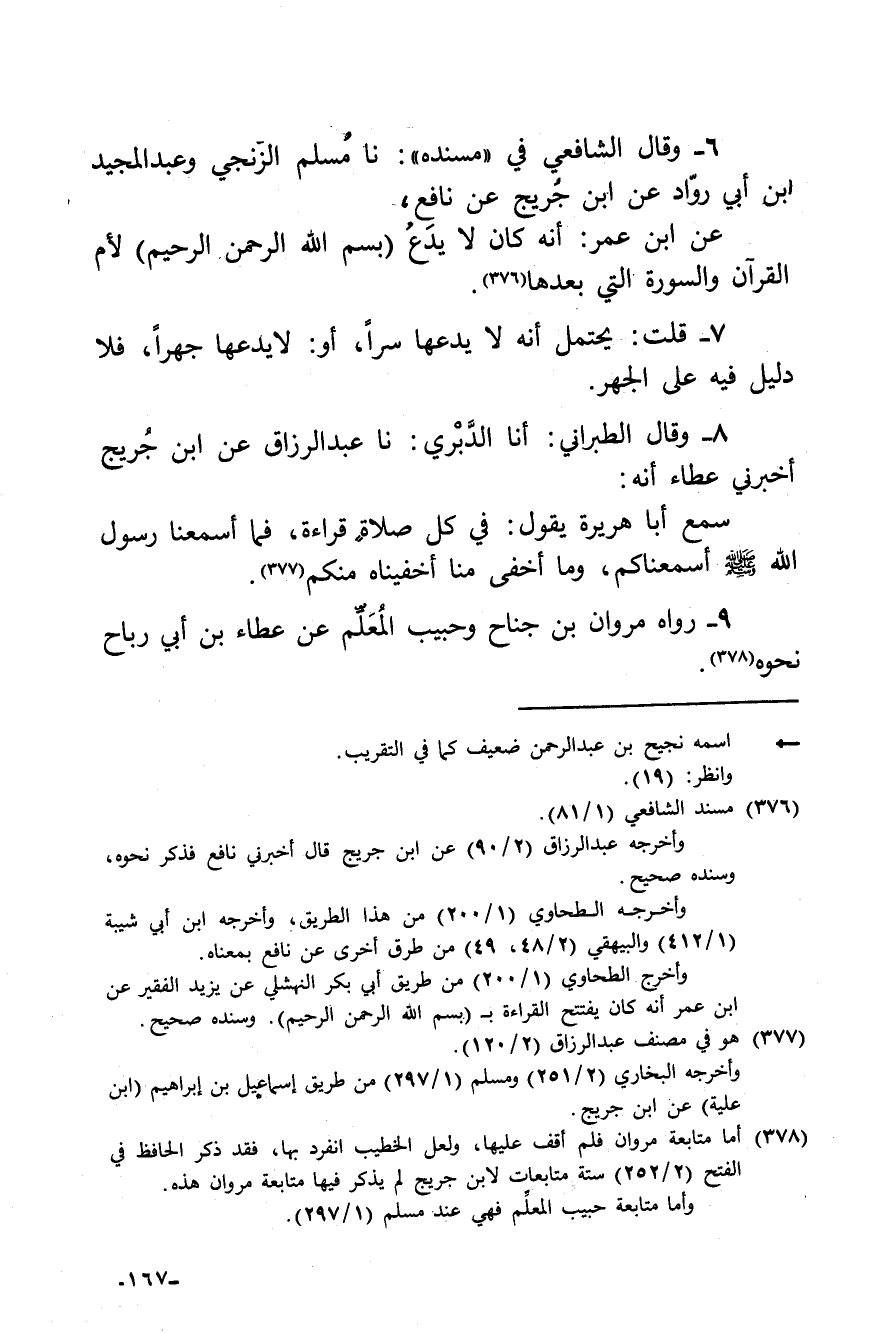 ٦ـ وقال الشافعي في «مسنده»: نا مُسلم الزّنجي وعبدالمجيد
ابن أبي روّاد عن ابن جُريج عن نافع،
عن ابن عمر: أنه كان لا يدَعُ (بسم الله الرحمن الرحيم) لأم
القرآن والسورة التي بعدها(٣٧٦).
٧ـ قلت: يحتمل أنه لا يدعها سراً، أو: لايدعها جهراً، فلا
دليل فيه على الجهر.
٨ـ وقال الطبراني: أنا الدَّبْري: نا عبدالرزاق عن ابن جُريج
أخبرني عطاء أنه:
سمع أبا هريرة يقول: في كل صلاةٍ قراءة، فما أسمعنا رسول
الله ﷺ أسمعناكم، وما أخفى منا أخفيناه منكم(٣٧٧).
٩ـ رواه مروان بن جناح وحبيب المُعَلِّم عن عطاء بن أبي رباح
نحوه(٣٧٨).
← اسمه نجيح بن عبدالرحمن ضعيف كما في التقريب.
وانظر: (١٩).
(٣٧٦) مسند الشافعي (٨١/١).
وأخرجه عبدالرزاق (٩٠/٢) عن ابن جريج قال أخبرني نافع فذكر نحوه،
وسنده صحيح.
وأخـرجـه الـطحاوي (٢٠٠/١) من هذا الطريق، وأخرجه ابن أبي شيبة
(٤١٢/١) والبيهقي (٤٨/٢، ٤٩) من طرق أخرى عن نافع بمعناه.
وأخرج الطحاوي (٢٠٠/١) من طريق أبي بكر النهشلي عن يزيد الفقير عن
ابن عمر أنه كان يفتتح القراءة بـ (بسم الله الرحمن الرحيم). وسنده صحيح.
(٣٧٧) هو في مصنف عبدالرزاق (١٢٠/٢).
وأخرجه البخاري (٢٥١/٢) ومسلم (٢٩٧/١) من طريق إسماعيل بن إبراهيم (ابن
علية) عن ابن جريج.
(٣٧٨) أما متابعة مروان فلم أقف عليها، ولعل الخطيب انفرد بها، فقد ذكر الحافظ في
الفتح (٢٥٢/٢) ستة متابعات لابن جريج لم يذكر فيها متابعة مروان هذه.
وأما متابعة حبيب المعلِّم فهي عند مسلم (٢٩٧/١).
ـ١٦٧ـ